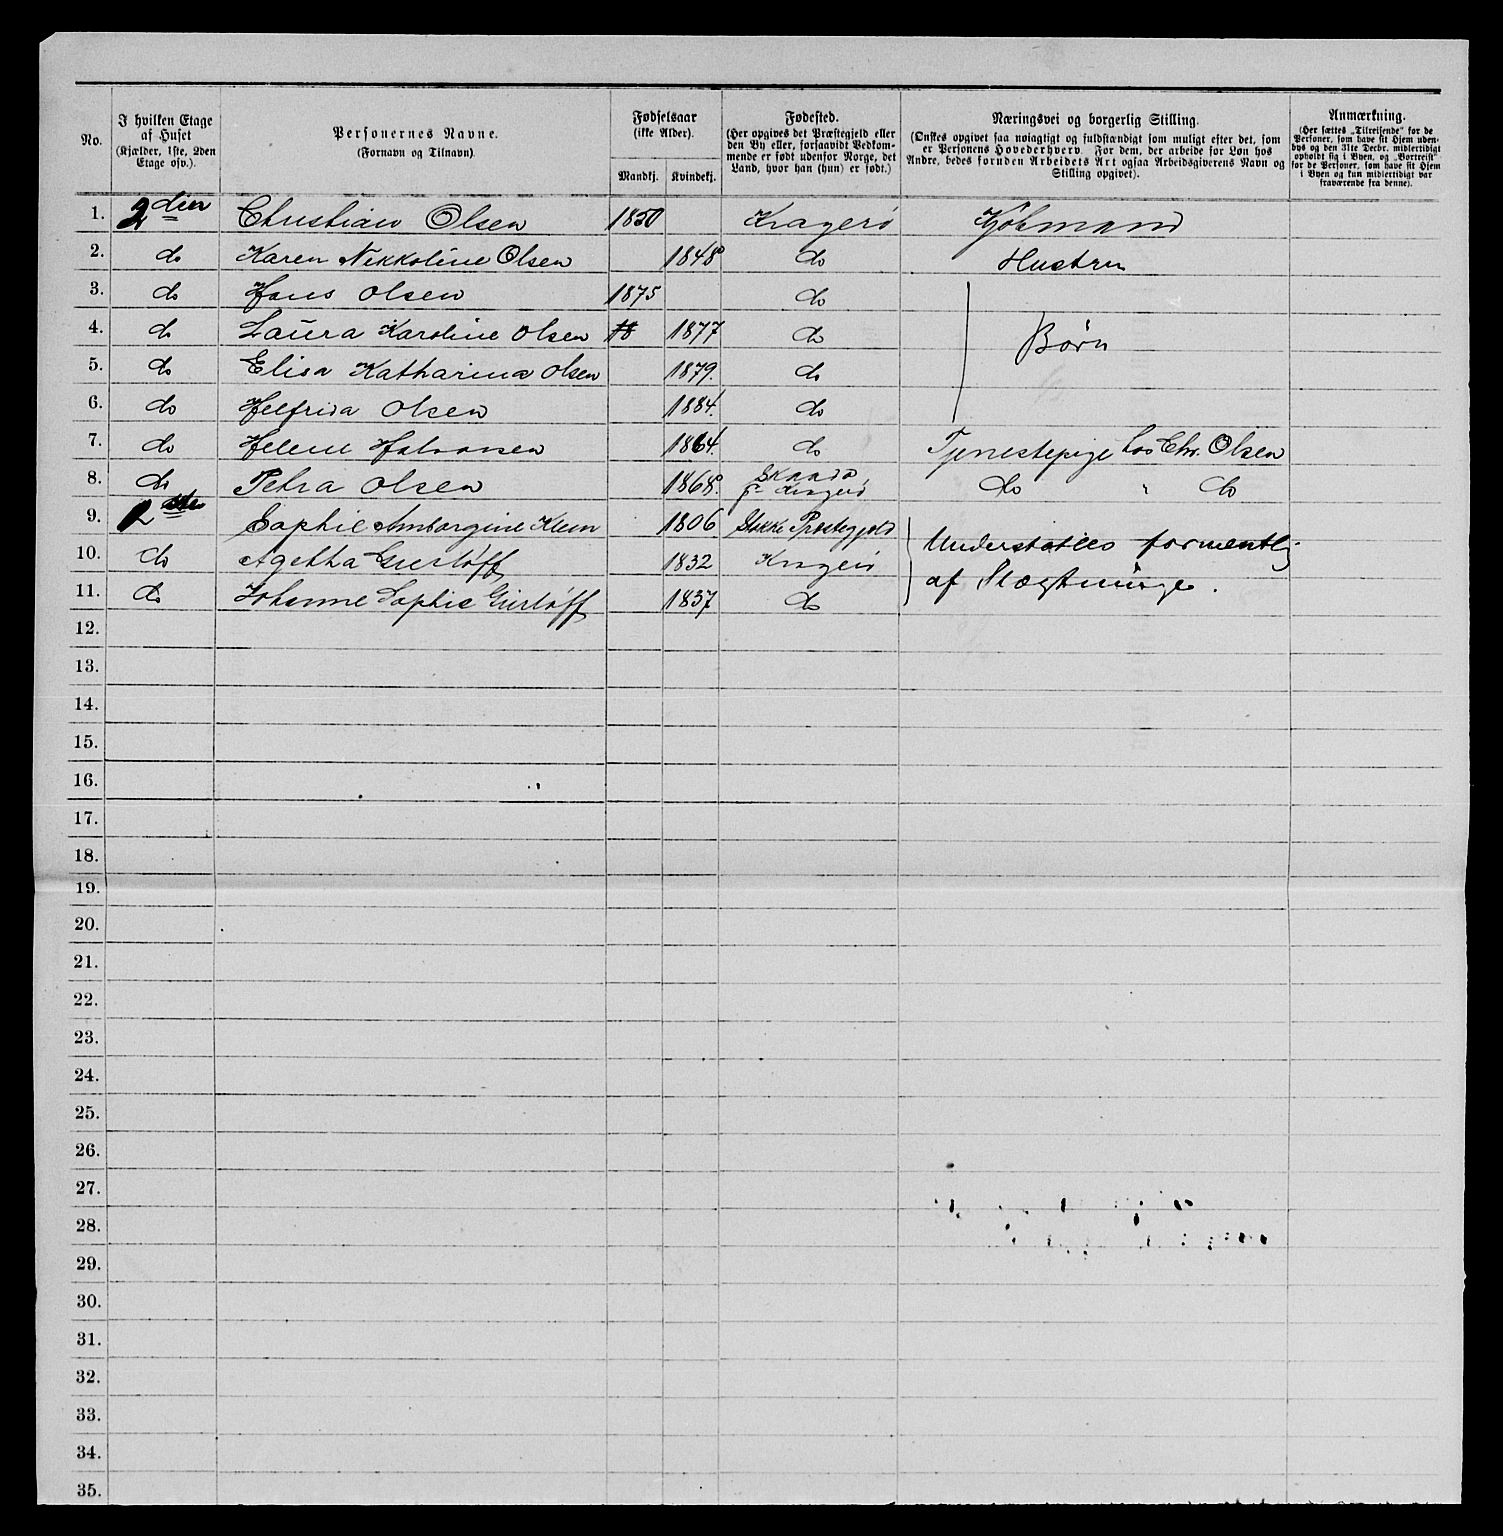 No.
I hvilken Etage af Huset (Kjælder, 1ste, 2den Etage osv.).
Personernes Navne. (Fornavn og Tilnavn).
Fødselsaar (ikke Alder). Mandkj. Kvindekj.
Fødested. (Her opgives det Præstegjeld eller den By eller, forsaavidt Vedkommende er født udenfor Norge, det Land, hvor han (hun) er født.)
Næringsvei og borgerlig Stilling. (Ønskes opgivet saa nøiagtigt og fuldstændigt som muligt efter det, som er Personens Hovederhverv. For dem, der arbeide for Løn hos Andre, bedes foruden Arbeidets Art ogsaa Arbeidsgiverens Navn og Stilling opgivet).
Anmærkning. (Her sættes „Tilreisende" for de Personer, som have sit Hjem udenbys og den 31te Decbr. midlertidigt opholdt sig i Byen, og „Bortreist" for de Personer, som have sit Hjem i Byen og kun midlertidigt var fraværende fra denne).
1. 2den Christian Olsen 1850 Kragerö Kjöbmand
2. do Karen Nikkoline Olsen 1848 do Hustru
3. do Hans Olsen 1875 do
4. do Laura Karoline Olsen 1877 do Børn
5. do Elisa Katharina Olsen 1879. do
6. do Helfrida Olsen 1884. do
7. do Helene Halvorsen 1864. do Tjenestepige hos Chr. Olsen
8. do Petra Olsen 1868. Skaadö pr Kragerö do " do
9. 1ste Sophie Amborgine Klem 1806 Stokke Præstegjeld Understøttes formentlig
10. do Agetha Gierløff 1832 Kragerö
11. do Johanne Sophie Gierløff 1837 do af Slægtninge.
12.
13.
14.
15.
16.
17.
18.
19.
20.
21.
22.
23.
24.
25.
26.
27.
28.
29.
30.
31.
32.
33.
34.
35.